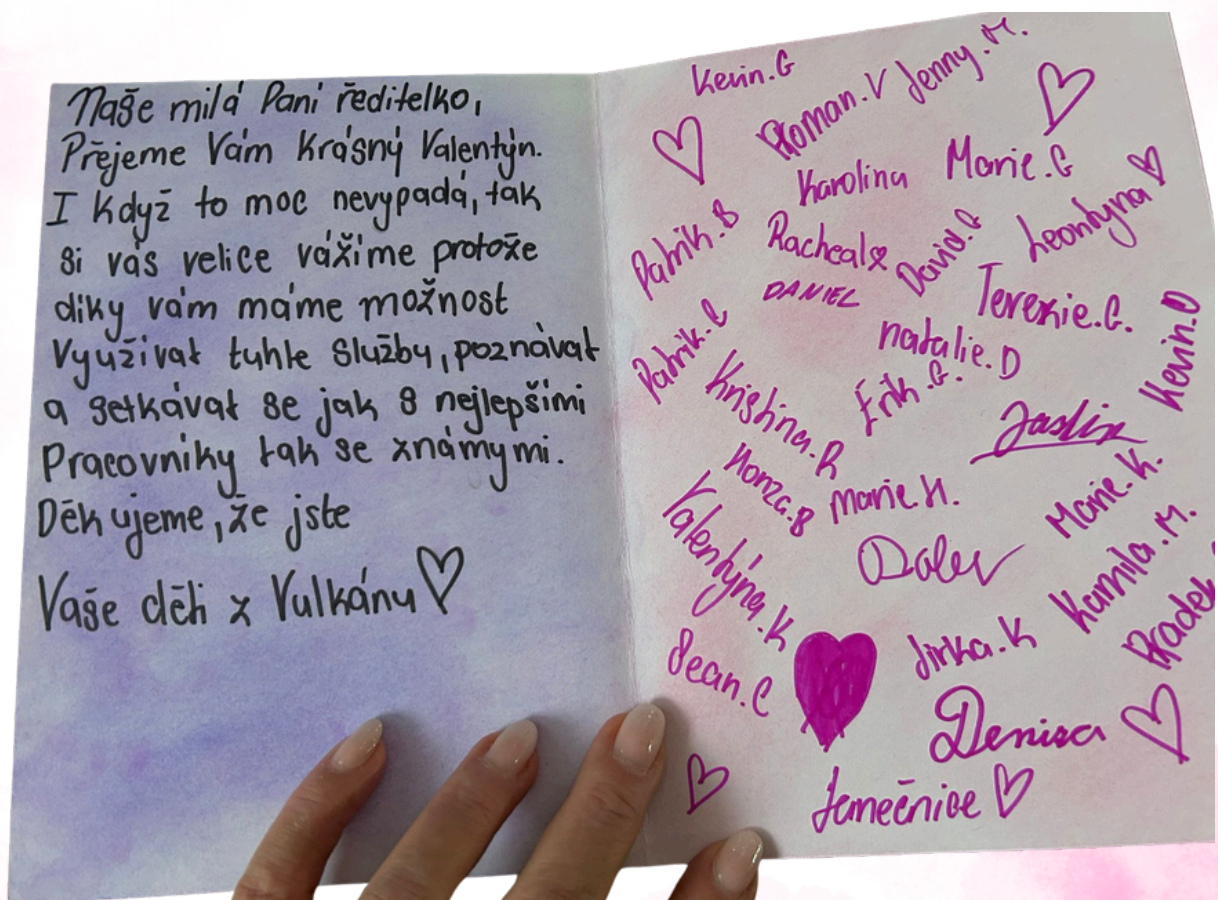 Naše milá Paní ředitelko,
Přejeme Vám Krásný Valentýn.
I když to moc nevypadá, tak
si vás velice vážíme protože
díky vám máme možnost
Využívat tuhle Službu, poznávat
a setkávat se jak s nejlepšími
Pracovníky tak se známými.
Děkujeme, že jste
Vaše děti z Vulkánu
Kevin.G
Roman.V
Jenny.M.
Karolina
Marie.G
Leontyna
Patrik.B
Racheal
David.G
DANIEL
Terezie.G.
Patrik.C
natalie.D
Kevin.D
Kristina.R
Erik.G.
Honza.B
Marie.H.
Marie.K.
Valentýna.K
Kamila.M.
Radek
Jirka.K
Sean.C
Denisa